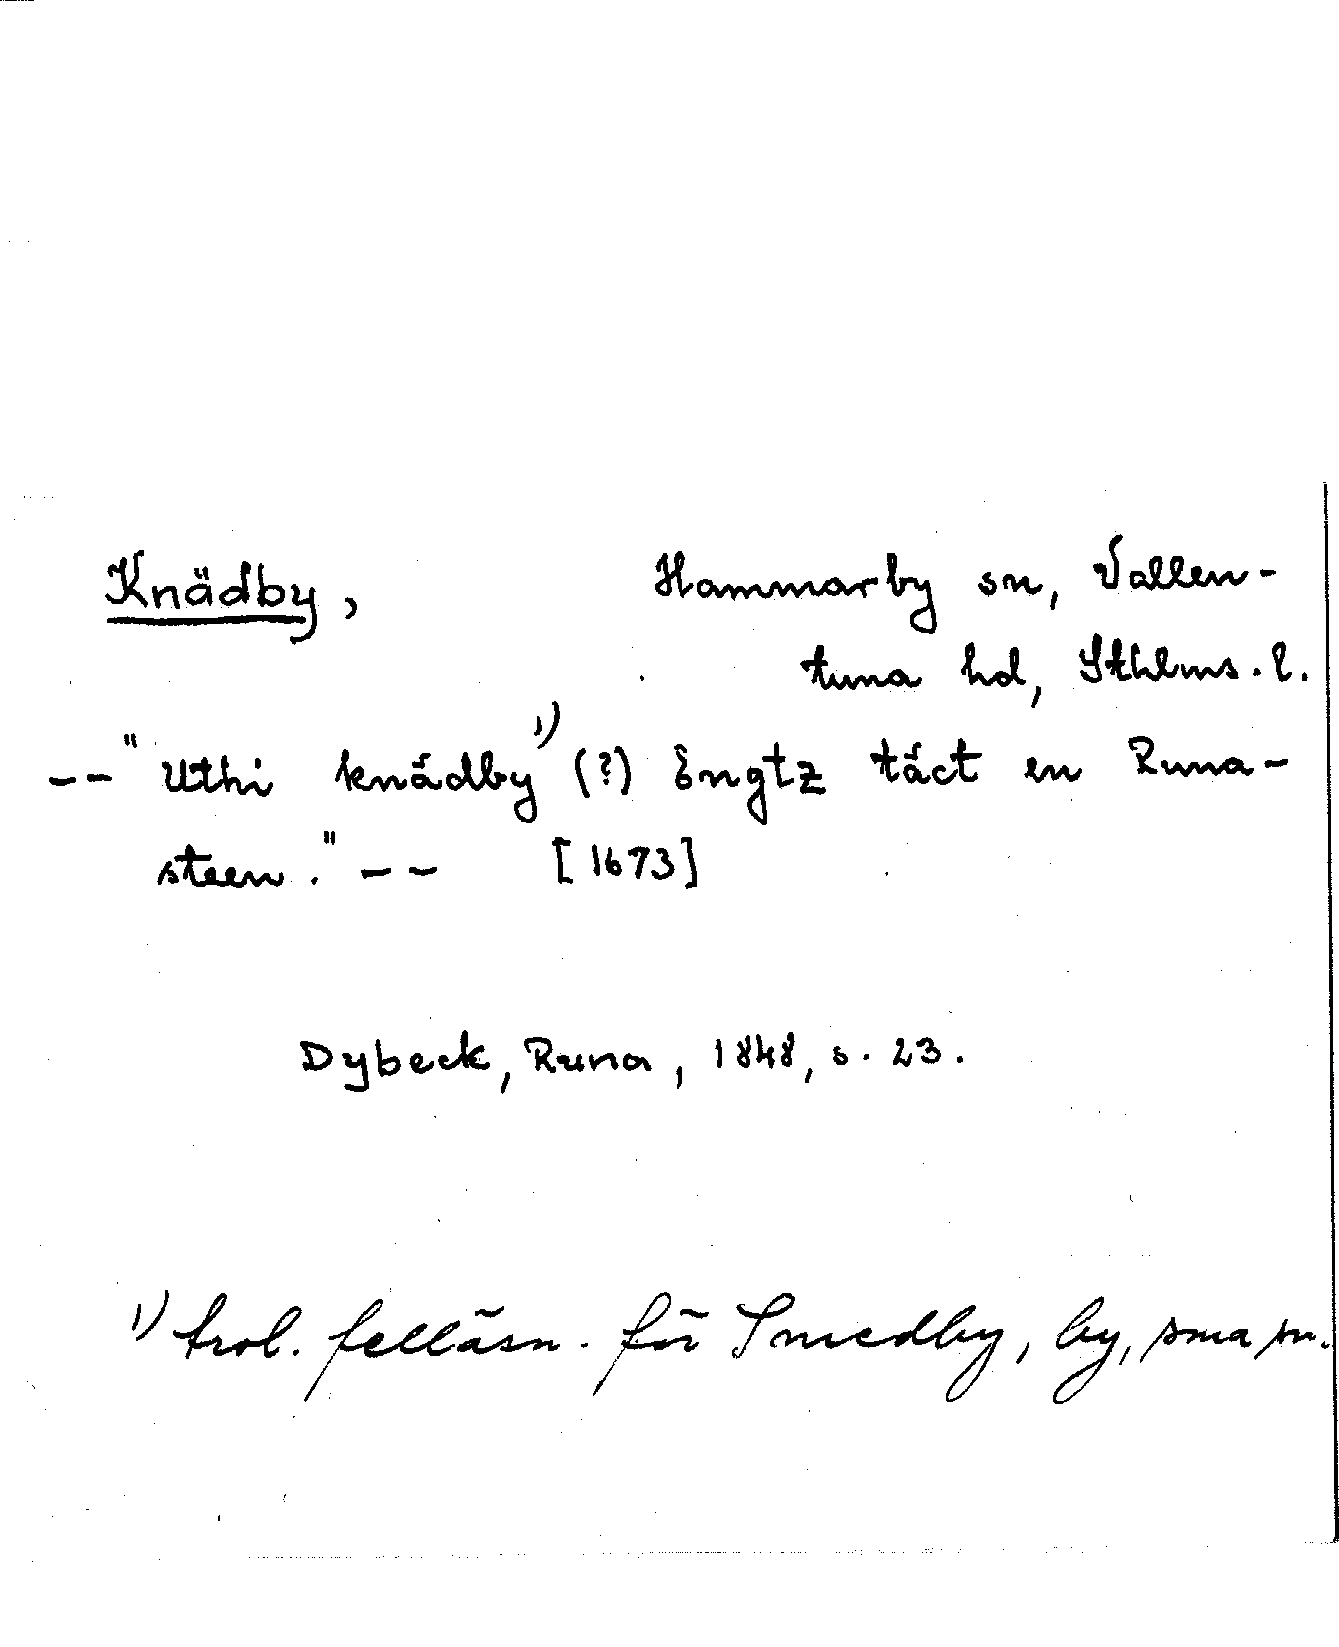 Knädby, Hammarby sn, Vallen-
tuna hd, Sthlms. l.
-- "Uthi knädby 1) (?) Engtz täct en Runa-
steen." -- [1673]
Dybeck, Runa, 1848, s. 23.
1) trol. felläsn. för Smedby, by, sma sn.